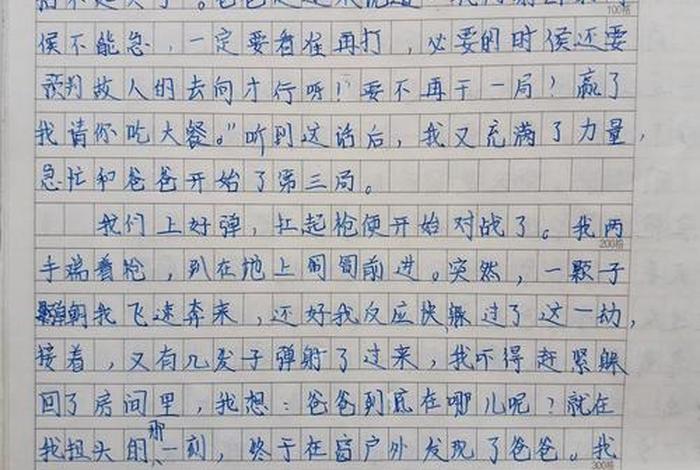 100格
侯不能急，一定要看准再打，必要的时侯还要
预判敌人的去向才行呀！要不再干一局？赢了
我请你吃大餐。”听到这话后，我又充满了力量，
急忙和爸爸开始了第三局。
我们上好弹，扛起枪便开始对战了。我两
200格
手端着枪，趴在地上匍匐前进。突然，一颗子
弹朝我飞速奔来，还好我反应快躲过了这一劫，
接着，又有几发子弹射了过来，我吓得赶紧躲
回了房间里，我想：爸爸到底在哪儿呢？就在
我扭头的那一刻，终于在窗户外发现了爸爸。我
300格